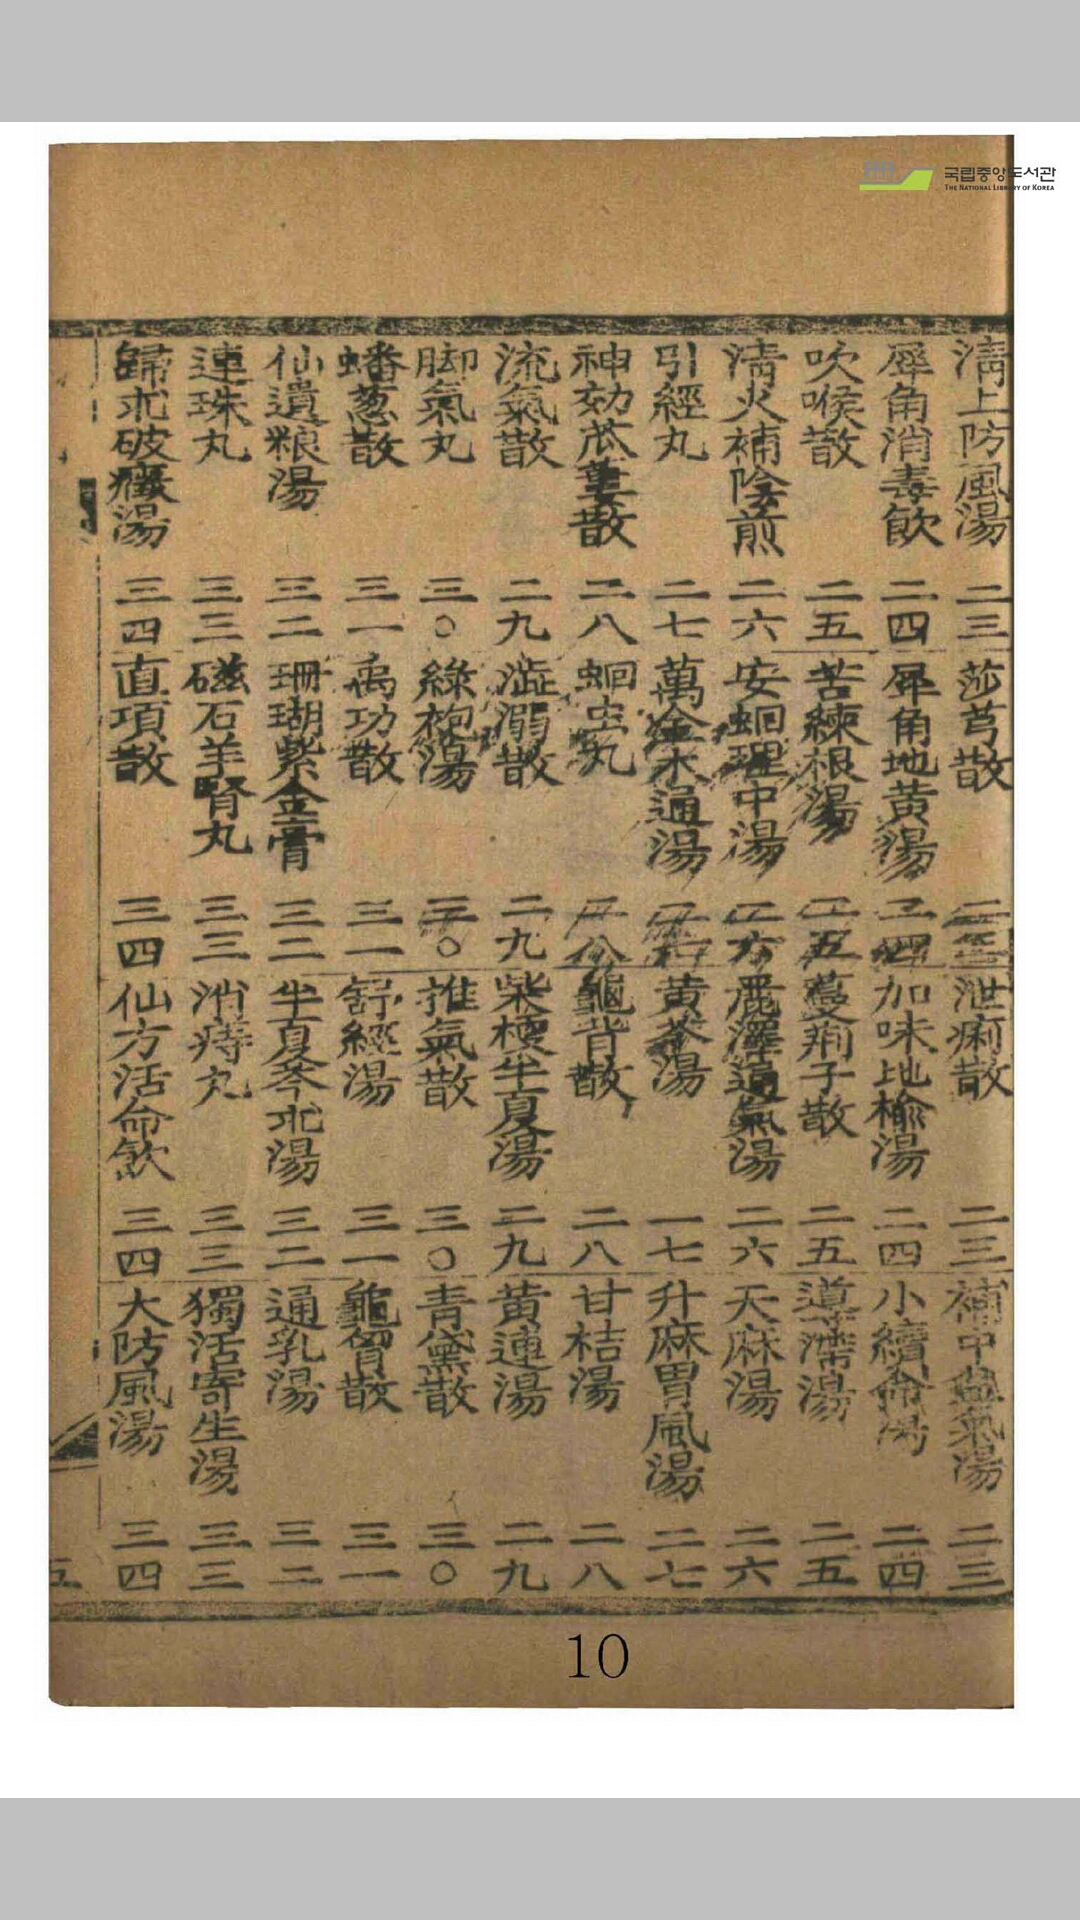 국립중앙도서관
THE NATIONAL LIBRARY OF KOREA
淸上防風湯 二三 莎芎散 二三 泄痢散 二三 補中益氣湯 二三
犀角消毒飮 二四 犀角地黃湯 二四 加味地楡湯 二四 小續命湯 二四
吹喉散 二五 苦練根湯 二五 蔓荊子散 二五 導滯湯 二五
淸火補陰煎 二六 安蛔理中湯 二六 麗澤通氣湯 二六 天麻湯 二六
引經丸 二七 萬金木通湯 黃芩湯 一七 升麻胃風湯 二七
神効苽蔞散 二八 蛔虫丸 二八 龜背散 二八 甘桔湯 二八
流氣散 二九 澁溺散 二九 柴梗半夏湯 二九 黃連湯 二九
脚氣丸 三〇 綠袍湯 三〇 推氣散 三〇 靑黛散 三〇
蟠葱散 三一 禹功散 三一 舒經湯 三一 龜胷散 三一
仙遺粮湯 三二 珊瑚紫金膏 三二 半夏芩朮湯 三二 通乳湯 三二
連珠丸 三三 磁石羊腎丸 三三 消痔丸 三三 獨活寄生湯 三三
歸朮破癥湯 三四 直項散 三四 仙方活命飮 三四 大防風湯 三四
五
10